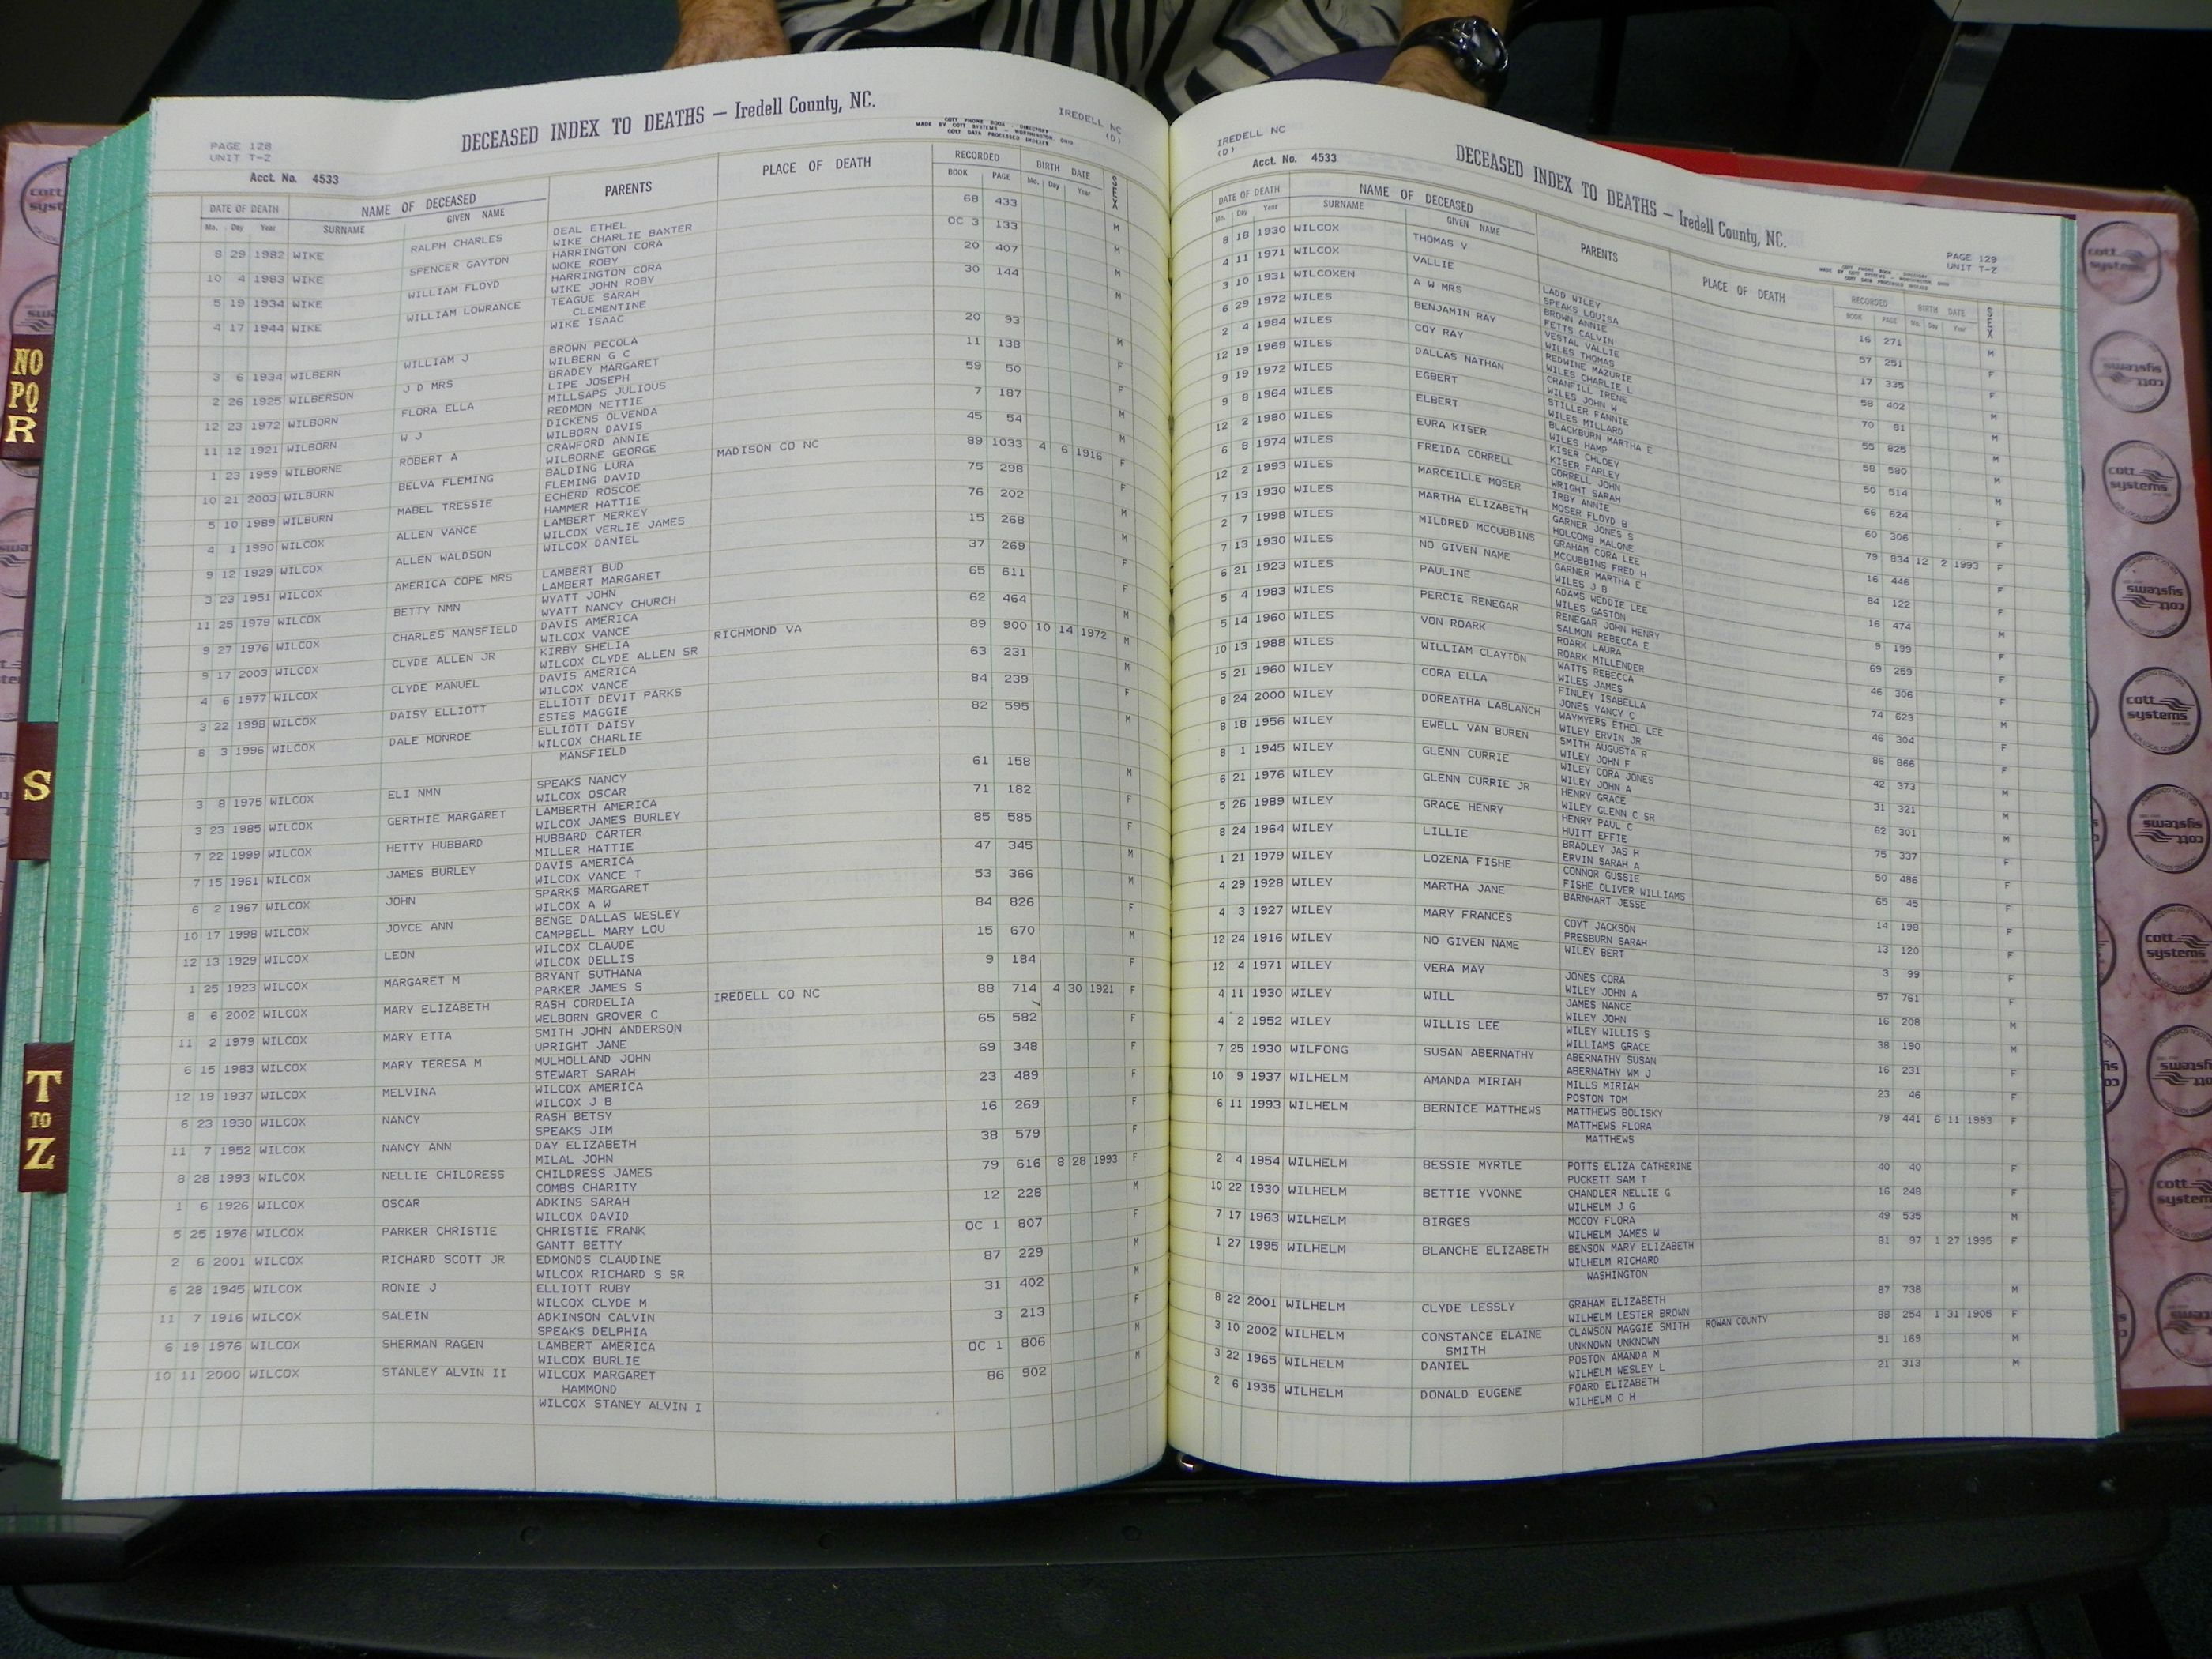 PAGE 128
UNIT T-Z
DECEASED INDEX TO DEATHS — Iredell County, NC.
COTT PHONE BOOK - DIRECTORY
MADE BY COTT SYSTEMS - WORTHINGTON, OHIO
COTT DATA PROCESSED INDEXES
IREDELL NC
(D)
Acct. No. 4533
DATE OF DEATH NAME OF DECEASED PARENTS PLACE OF DEATH RECORDED BIRTH DATE SEX
Mo. Day Year SURNAME GIVEN NAME BOOK PAGE Mo. Day Year
8 29 1982 WIKE RALPH CHARLES DEAL ETHEL 68 433 M
WIKE CHARLIE BAXTER
10 4 1983 WIKE SPENCER GAYTON HARRINGTON CORA OC 3 133 M
WOKE ROBY
5 19 1934 WIKE WILLIAM FLOYD HARRINGTON CORA 20 407 M
WIKE JOHN ROBY
4 17 1944 WIKE WILLIAM LOWRANCE TEAGUE SARAH 30 144 M
CLEMENTINE
WIKE ISAAC
3 6 1934 WILBERN WILLIAM J BROWN PECOLA 20 93 M
WILBERN G C
2 26 1925 WILBERSON J D MRS BRADEY MARGARET 11 138 F
LIPE JOSEPH
12 23 1972 WILBORN FLORA ELLA MILLSAPS JULIOUS 59 50 F
REDMON NETTIE
11 12 1921 WILBORN W J DICKENS OLVENDA 7 187 M
WILBORN DAVIS
1 23 1959 WILBORNE ROBERT A CRAWFORD ANNIE 45 54 M
WILBORNE GEORGE
10 21 2003 WILBURN BELVA FLEMING BALDING LURA MADISON CO NC 89 1033 4 6 1916 F
FLEMING DAVID
5 10 1989 WILBURN MABEL TRESSIE ECHERD ROSCOE 75 298 F
HAMMER HATTIE
4 1 1990 WILCOX ALLEN VANCE LAMBERT MERKEY 76 202 M
WILCOX VERLIE JAMES
9 12 1929 WILCOX ALLEN WALDSON WILCOX DANIEL 15 268 M
3 23 1951 WILCOX AMERICA COPE MRS LAMBERT BUD 37 269 F
LAMBERT MARGARET
11 25 1979 WILCOX BETTY NMN WYATT JOHN 65 611 F
WYATT NANCY CHURCH
9 27 1976 WILCOX CHARLES MANSFIELD DAVIS AMERICA 62 464 M
WILCOX VANCE
9 17 2003 WILCOX CLYDE ALLEN JR KIRBY SHELIA RICHMOND VA 89 900 10 14 1972 M
WILCOX CLYDE ALLEN SR
4 6 1977 WILCOX CLYDE MANUEL DAVIS AMERICA 63 231 M
WILCOX VANCE
3 22 1998 WILCOX DAISY ELLIOTT ELLIOTT DEVIT PARKS 84 239 F
ESTES MAGGIE
8 3 1996 WILCOX DALE MONROE ELLIOTT DAISY 82 595 M
WILCOX CHARLIE
MANSFIELD
3 8 1975 WILCOX ELI NMN SPEAKS NANCY 61 158 M
WILCOX OSCAR
3 23 1985 WILCOX GERTHIE MARGARET LAMBERTH AMERICA 71 182 F
WILCOX JAMES BURLEY
7 22 1999 WILCOX HETTY HUBBARD HUBBARD CARTER 85 585 F
MILLER HATTIE
7 15 1961 WILCOX JAMES BURLEY DAVIS AMERICA 47 345 M
WILCOX VANCE T
6 2 1967 WILCOX JOHN SPARKS MARGARET 53 366 M
WILCOX A W
10 17 1998 WILCOX JOYCE ANN BENGE DALLAS WESLEY 84 826 F
CAMPBELL MARY LOU
12 13 1929 WILCOX LEON WILCOX CLAUDE 15 670 M
WILCOX DELLIS
1 25 1923 WILCOX MARGARET M BRYANT SUTHANA 9 184 F
PARKER JAMES S
8 6 2002 WILCOX MARY ELIZABETH RASH CORDELIA IREDELL CO NC 88 714 4 30 1921 F
WELBORN GROVER C
11 2 1979 WILCOX MARY ETTA SMITH JOHN ANDERSON 65 582 F
UPRIGHT JANE
6 15 1983 WILCOX MARY TERESA M MULHOLLAND JOHN 69 348 F
STEWART SARAH
12 19 1937 WILCOX MELVINA WILCOX AMERICA 23 489 F
WILCOX J B
6 23 1930 WILCOX NANCY RASH BETSY 16 269 F
SPEAKS JIM
11 7 1952 WILCOX NANCY ANN DAY ELIZABETH 38 579 F
MILAL JOHN
8 28 1993 WILCOX NELLIE CHILDRESS CHILDRESS JAMES 79 616 8 28 1993 F
COMBS CHARITY
1 6 1926 WILCOX OSCAR ADKINS SARAH 12 228 M
WILCOX DAVID
5 25 1976 WILCOX PARKER CHRISTIE CHRISTIE FRANK OC 1 807 F
GANTT BETTY
2 6 2001 WILCOX RICHARD SCOTT JR EDMONDS CLAUDINE 87 229 M
WILCOX RICHARD S SR
6 28 1945 WILCOX RONIE J ELLIOTT RUBY 31 402 M
WILCOX CLYDE M
11 7 1916 WILCOX SALEIN ADKINSON CALVIN 3 213 F
SPEAKS DELPHIA
6 19 1976 WILCOX SHERMAN RAGEN LAMBERT AMERICA OC 1 806 M
WILCOX BURLIE
10 11 2000 WILCOX STANLEY ALVIN II WILCOX MARGARET 86 902 M
HAMMOND
WILCOX STANEY ALVIN I
IREDELL NC
(D)
DECEASED INDEX TO DEATHS — Iredell County, NC.
Acct. No. 4533
COTT PHONE BOOK - DIRECTORY
MADE BY COTT SYSTEMS - WORTHINGTON, OHIO
COTT DATA PROCESSED INDEXES
PAGE 129
UNIT T-Z
DATE OF DEATH NAME OF DECEASED PARENTS PLACE OF DEATH RECORDED BIRTH DATE SEX
Mo. Day Year SURNAME GIVEN NAME BOOK PAGE Mo. Day Year
8 18 1930 WILCOX THOMAS V 16 271 M
4 11 1971 WILCOX VALLIE LADD WILEY 57 251 F
SPEAKS LOUISA
3 10 1931 WILCOXEN A W MRS BROWN ANNIE 17 335 F
FETTS CALVIN
6 29 1972 WILES BENJAMIN RAY VESTAL VALLIE 58 402 M
WILES THOMAS
2 4 1984 WILES COY RAY REDWINE MAZURIE 70 81 M
WILES CHARLIE L
12 19 1969 WILES DALLAS NATHAN CRANFILL IRENE 55 825 M
WILES JOHN W
9 19 1972 WILES EGBERT STILLER FANNIE 58 580 M
WILES MILLARD
9 8 1964 WILES ELBERT BLACKBURN MARTHA E 50 514 M
WILES HAMP
12 2 1980 WILES EURA KISER KISER CHLOEY 66 624 F
KISER FARLEY
6 8 1974 WILES FREIDA CORRELL CORRELL JOHN 60 306 F
WRIGHT SARAH
12 2 1993 WILES MARCEILLE MOSER IRBY ANNIE 79 834 12 2 1993 F
MOSER FLOYD B
7 13 1930 WILES MARTHA ELIZABETH GARNER JONES S 16 446 F
HOLCOMB MALONE
2 7 1998 WILES MILDRED MCCUBBINS GRAHAM CORA LEE 84 122 F
MCCUBBINS FRED H
7 13 1930 WILES NO GIVEN NAME GARNER MARTHA E 16 474 M
WILES J B
6 21 1923 WILES PAULINE ADAMS WEDDIE LEE 9 199 F
WILES GASTON
5 4 1983 WILES PERCIE RENEGAR RENEGAR JOHN HENRY 69 259 F
SALMON REBECCA E
5 14 1960 WILES VON ROARK ROARK LAURA 46 306 F
ROARK MILLENDER
10 13 1988 WILES WILLIAM CLAYTON WATTS REBECCA 74 623 M
WILES JAMES
5 21 1960 WILEY CORA ELLA FINLEY ISABELLA 46 304 F
JONES YANCY C
8 24 2000 WILEY DOREATHA LABLANCH WAYMYERS ETHEL LEE 86 866 F
WILEY ERVIN JR
8 18 1956 WILEY EWELL VAN BUREN SMITH AUGUSTA R 42 373 M
WILEY JOHN F
8 1 1945 WILEY GLENN CURRIE WILEY CORA JONES 31 321 M
WILEY JOHN A
6 21 1976 WILEY GLENN CURRIE JR HENRY GRACE 62 301 M
WILEY GLENN C SR
5 26 1989 WILEY GRACE HENRY HENRY PAUL C 75 337 F
HUITT EFFIE
8 24 1964 WILEY LILLIE BRADLEY JAS H 50 486 F
ERVIN SARAH A
1 21 1979 WILEY LOZENA FISHE CONNOR GUSSIE 65 45 F
FISHE OLIVER WILLIAMS
4 29 1928 WILEY MARTHA JANE BARNHART JESSE 14 198 F
4 3 1927 WILEY MARY FRANCES COYT JACKSON 13 120 F
PRESBURN SARAH
12 24 1916 WILEY NO GIVEN NAME WILEY BERT 3 99 F
12 4 1971 WILEY VERA MAY JONES CORA 57 761 F
WILEY JOHN A
4 11 1930 WILEY WILL JAMES NANCE 16 208 M
WILEY JOHN
4 2 1952 WILEY WILLIS LEE WILEY WILLIS S 38 190 M
WILLIAMS GRACE
7 25 1930 WILFONG SUSAN ABERNATHY ABERNATHY SUSAN 16 231 F
ABERNATHY WM J
10 9 1937 WILHELM AMANDA MIRIAH MILLS MIRIAH 23 46 F
POSTON TOM
6 11 1993 WILHELM BERNICE MATTHEWS MATTHEWS BOLISKY 79 441 6 11 1993 F
MATTHEWS FLORA
MATTHEWS
2 4 1954 WILHELM BESSIE MYRTLE POTTS ELIZA CATHERINE 40 40 F
PUCKETT SAM T
10 22 1930 WILHELM BETTIE YVONNE CHANDLER NELLIE G 16 248 F
WILHELM J G
7 17 1963 WILHELM BIRGES MCCOY FLORA 49 535 M
WILHELM JAMES W
1 27 1995 WILHELM BLANCHE ELIZABETH BENSON MARY ELIZABETH 81 97 1 27 1995 F
WILHELM RICHARD
WASHINGTON
8 22 2001 WILHELM CLYDE LESSLY GRAHAM ELIZABETH 87 738 M
WILHELM LESTER BROWN
3 10 2002 WILHELM CONSTANCE ELAINE CLAWSON MAGGIE SMITH ROWAN COUNTY 88 254 1 31 1905 F
SMITH UNKNOWN UNKNOWN
3 22 1965 WILHELM DANIEL POSTON AMANDA M 51 169 M
WILHELM WESLEY L
2 6 1935 WILHELM DONALD EUGENE FOARD ELIZABETH 21 313 M
WILHELM C H
NO
PQ
R
S
T
TO
Z
cott
systems